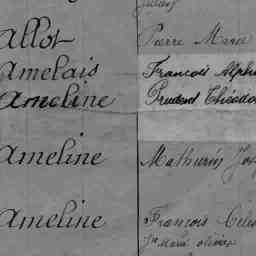 Allot Pierre Marie
Amelais François Alph
Ameline Prudent Théodo
Ameline Mathurin Jos
Ameline François Céles
Jn Marie Olivier